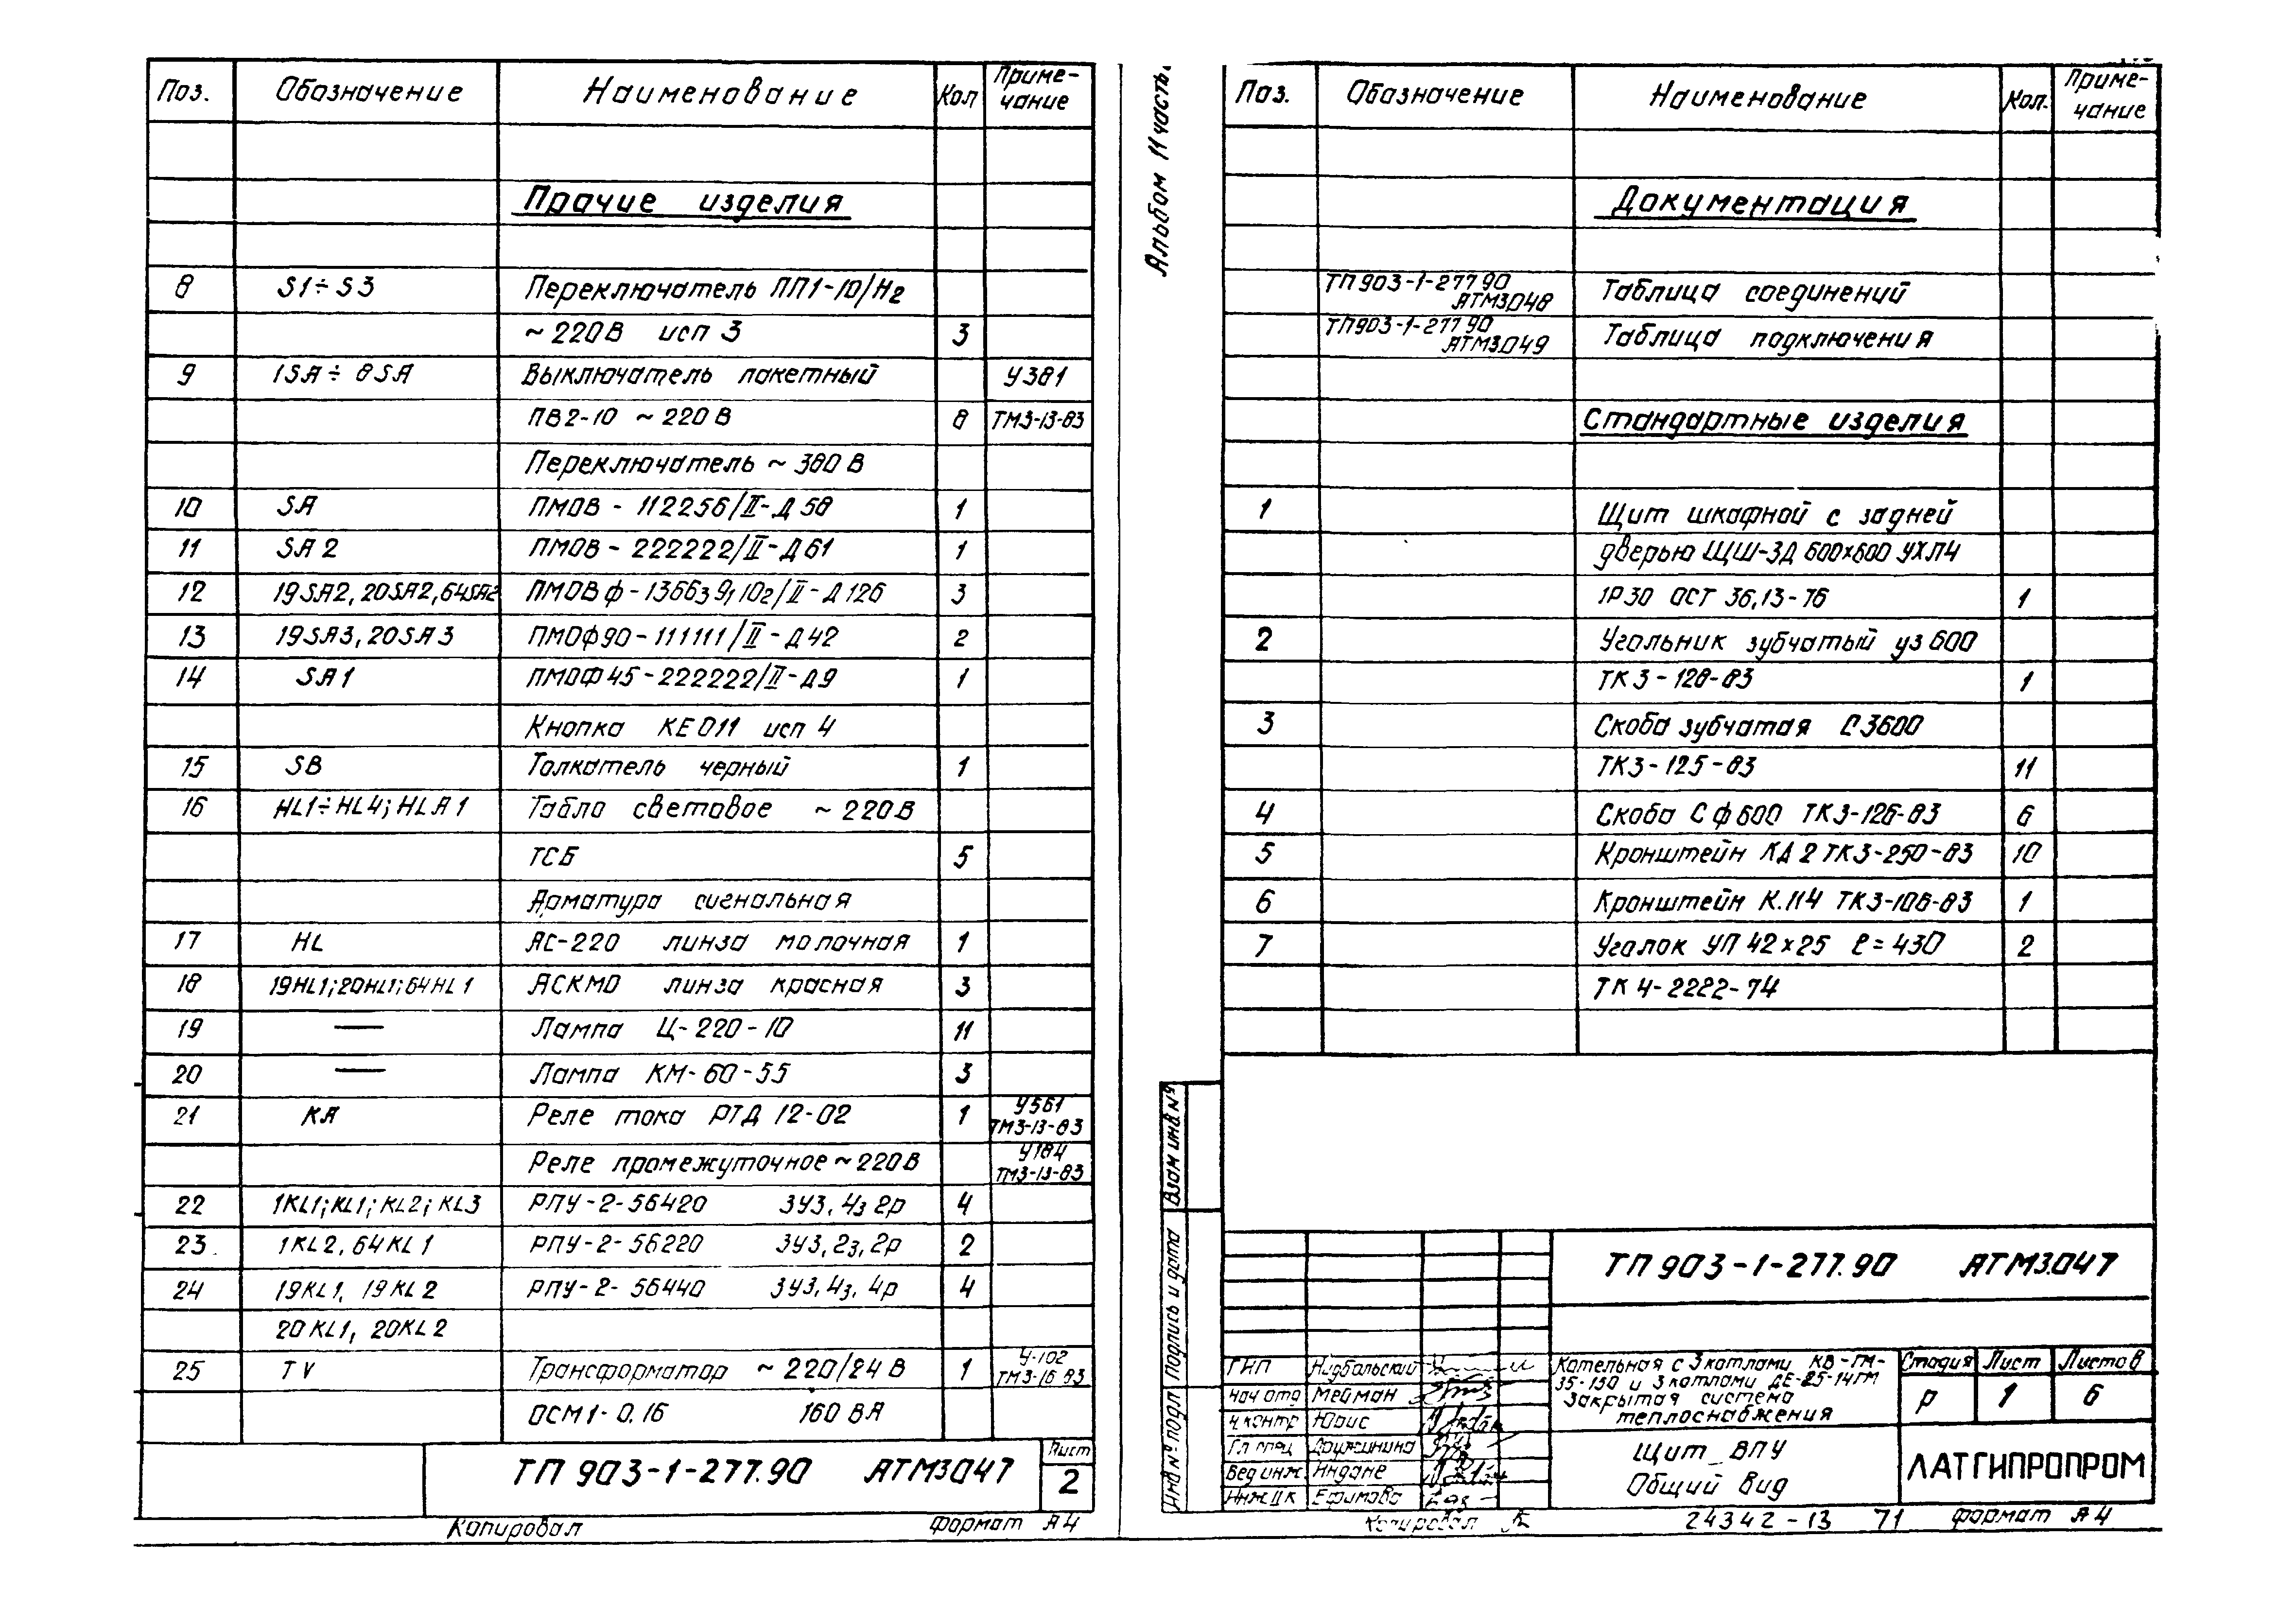 Поз. Обозначение Наименование Кол Приме-
чание
Прочие изделия
8 S1÷S3 Переключатель ПП1-10/Н2
~220В исп 3 3
9 1SA÷8SA Выключатель пакетный У381
ПВ2-10 ~220В 8 ТМ3-13-83
Переключатель ~380В
10 SA ПМОВ-112256/II-Д58 1
11 SA2 ПМОВ-222222/II-Д61 1
12 19SA2, 20SA2, 64SA2 ПМОВф-1366₃9₁10₂/II-Д126 3
13 19SA3, 20SA3 ПМОф90-111111/II-Д42 2
14 SA1 ПМОФ45-222222/II-Д9 1
Кнопка КЕ011 исп 4
15 SB Толкатель черный 1
16 HL1÷HL4; HLA1 Табло световое ~220В
ТСБ 5
Арматура сигнальная
17 HL АС-220 линза молочная 1
18 19HL1; 20HL1; 64HL1 АСКМО линза красная 3
19 — Лампа Ц-220-10 11
20 — Лампа КМ-60-55 3
21 КА Реле тока РТД 12-02 1 У561
ТМ3-13-83
Реле промежуточное ~220В У184
ТМ3-13-83
22 1KL1; KL1; KL2; KL3 РПУ-2-56420 3У3, 4з 2р 4
23 1KL2, 64KL1 РПУ-2-56220 3У3, 2з, 2р 2
24 19KL1, 19KL2 РПУ-2-56440 3У3, 4з, 4р 4
20KL1, 20KL2
25 TV Трансформатор ~220/24В 1 У-102
ТМ3-16 83
ОСМ1-0,16 160 ВА
ТП 903-1-277.90 АТМ3.047 Лист
2
Копировал Формат А4
Альбом 11 часть
Поз. Обозначение Наименование Кол. Приме-
чание
Документация
ТП903-1-277 90
АТМ3.048 Таблица соединений
ТП903-1-277 90
АТМ3.049 Таблица подключения
Стандартные изделия
1 Щит шкафной с задней
дверью ЩШ-ЗД 600х600 УХЛ4
IP30 ОСТ 36.13-76 1
2 Угольник зубчатый уз 600
ТК3-128-83 1
3 Скоба зубчатая СЗ600
ТК3-125-83 11
4 Скоба Сф600 ТК3-126-83 6
5 Кронштейн КД2 ТК3-250-83 10
6 Кронштейн К.114 ТК3-106-83 1
7 Уголок УП 42х25 ℓ=430 2
ТК 4-2222-74
Взам инв №
Подпись и дата
Инв № подл
ТП 903-1-277.90 АТМ3.047
ГИП
Нач отд Мейман
Н контр Юрис
Гл спец Дружинина
Вед инж. Индане
Инж II к Ефимова
Котельная с 3 котлами КВ-ГМ-
35-150 и 3 котлами ДЕ-25-14ГМ
Закрытая система
теплоснабжения
Стадия Лист Листов
Р 1 6
Щит ВПУ
Общий вид
ЛАТГИПРОПРОМ
Копировал 24342-13 71 Формат А4